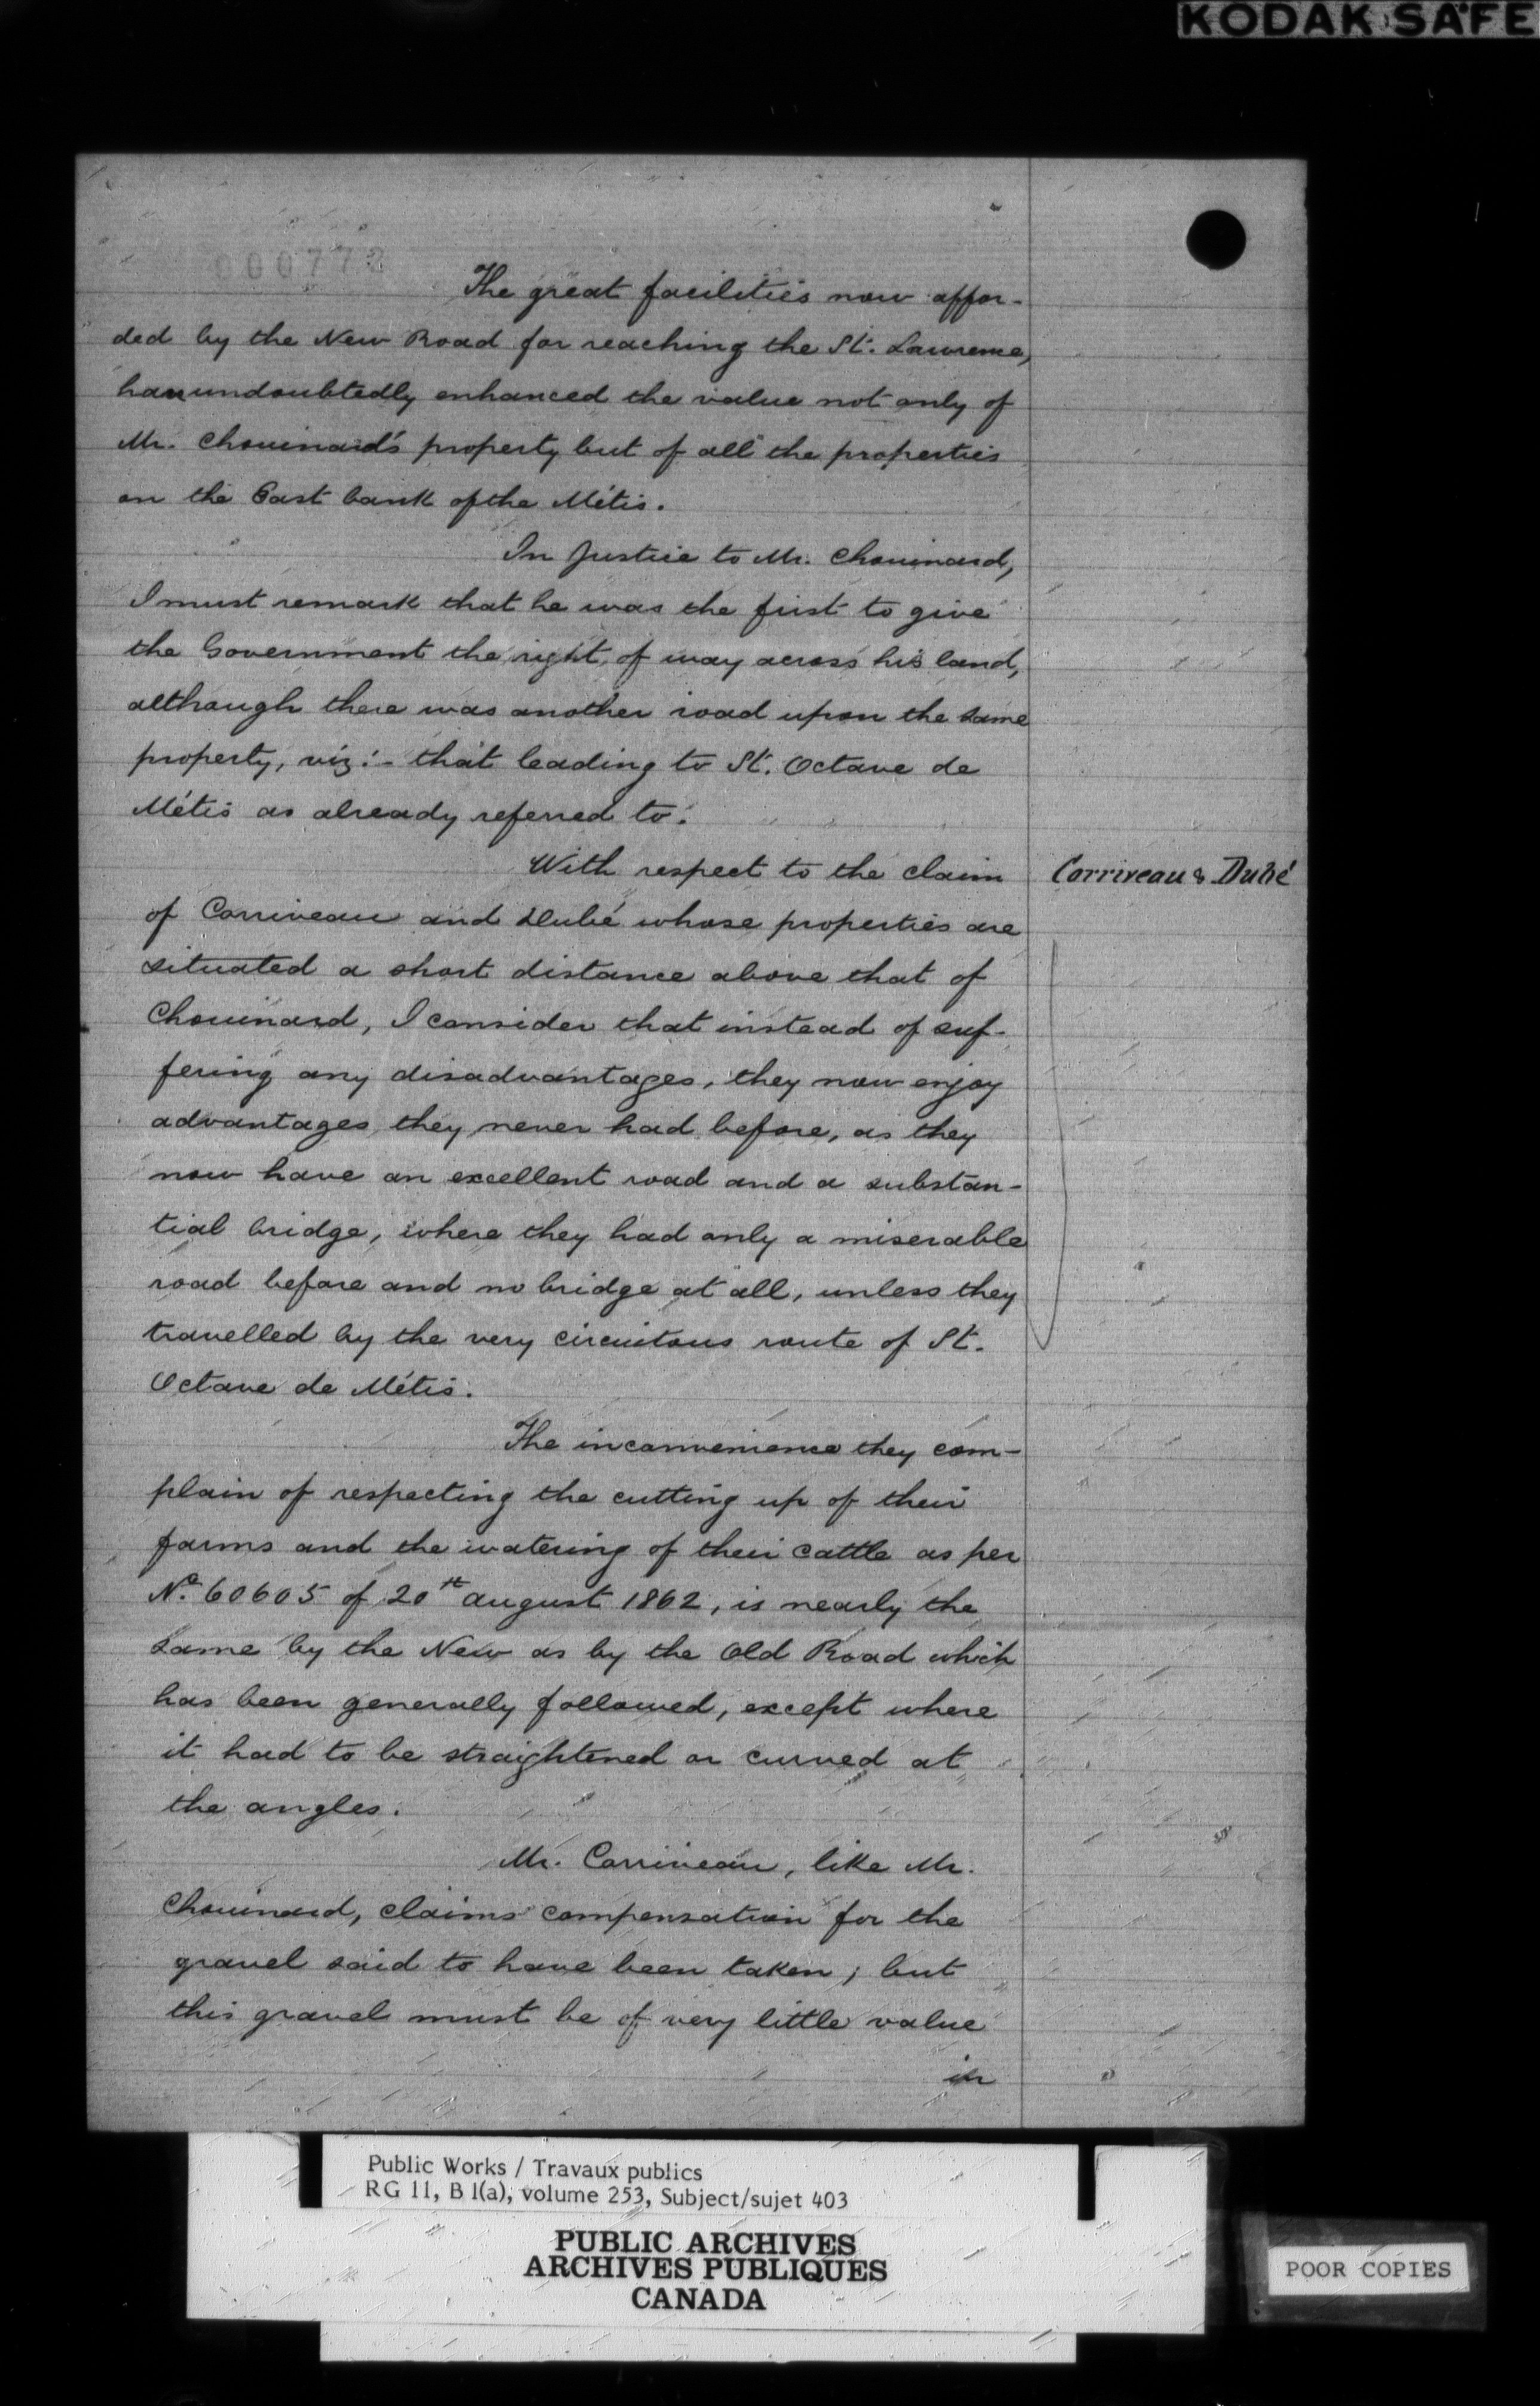 KODAK SAFE
000773
The great facilities now affor-
ded by the New Road for reaching the St. Lawrence,
has undoubtedly enhanced the value not only of
Mr. Chouinard's property but of all the properties
on the East bank of the Métis.
In Justice to Mr. Chouinard,
I must remark that he was the first to give
the Government the right of way across his land,
although there was another road upon the same
property, viz:- that leading to St. Octave de
Métis as already referred to.
With respect to the claim
Corriveau & Dubé
of Corriveau and Dubé whose properties are
situated a short distance above that of
Chouinard, I consider that instead of suf-
fering any disadvantages, they now enjoy
advantages they never had before, as they
now have an excellent road and a substan-
tial bridge, where they had only a miserable
road before and no bridge at all, unless they
travelled by the very circuitous route of St.
Octave de Métis.
The inconvenience they com-
plain of respecting the cutting up of their
farms and the watering of their cattle as per
No. 60605 of 20th august 1862, is nearly the
same by the New as by the Old Road which
has been generally followed, except where
it had to be straightened or curved at
the angles.
Mr. Corriveau, like Mr.
Chouinard, claims compensation for the
gravel said to have been taken; but
this gravel must be of very little value
in
Public Works / Travaux publics
RG 11, B 1(a), volume 253, Subject/sujet 403
PUBLIC ARCHIVES
ARCHIVES PUBLIQUES
CANADA
POOR COPIES